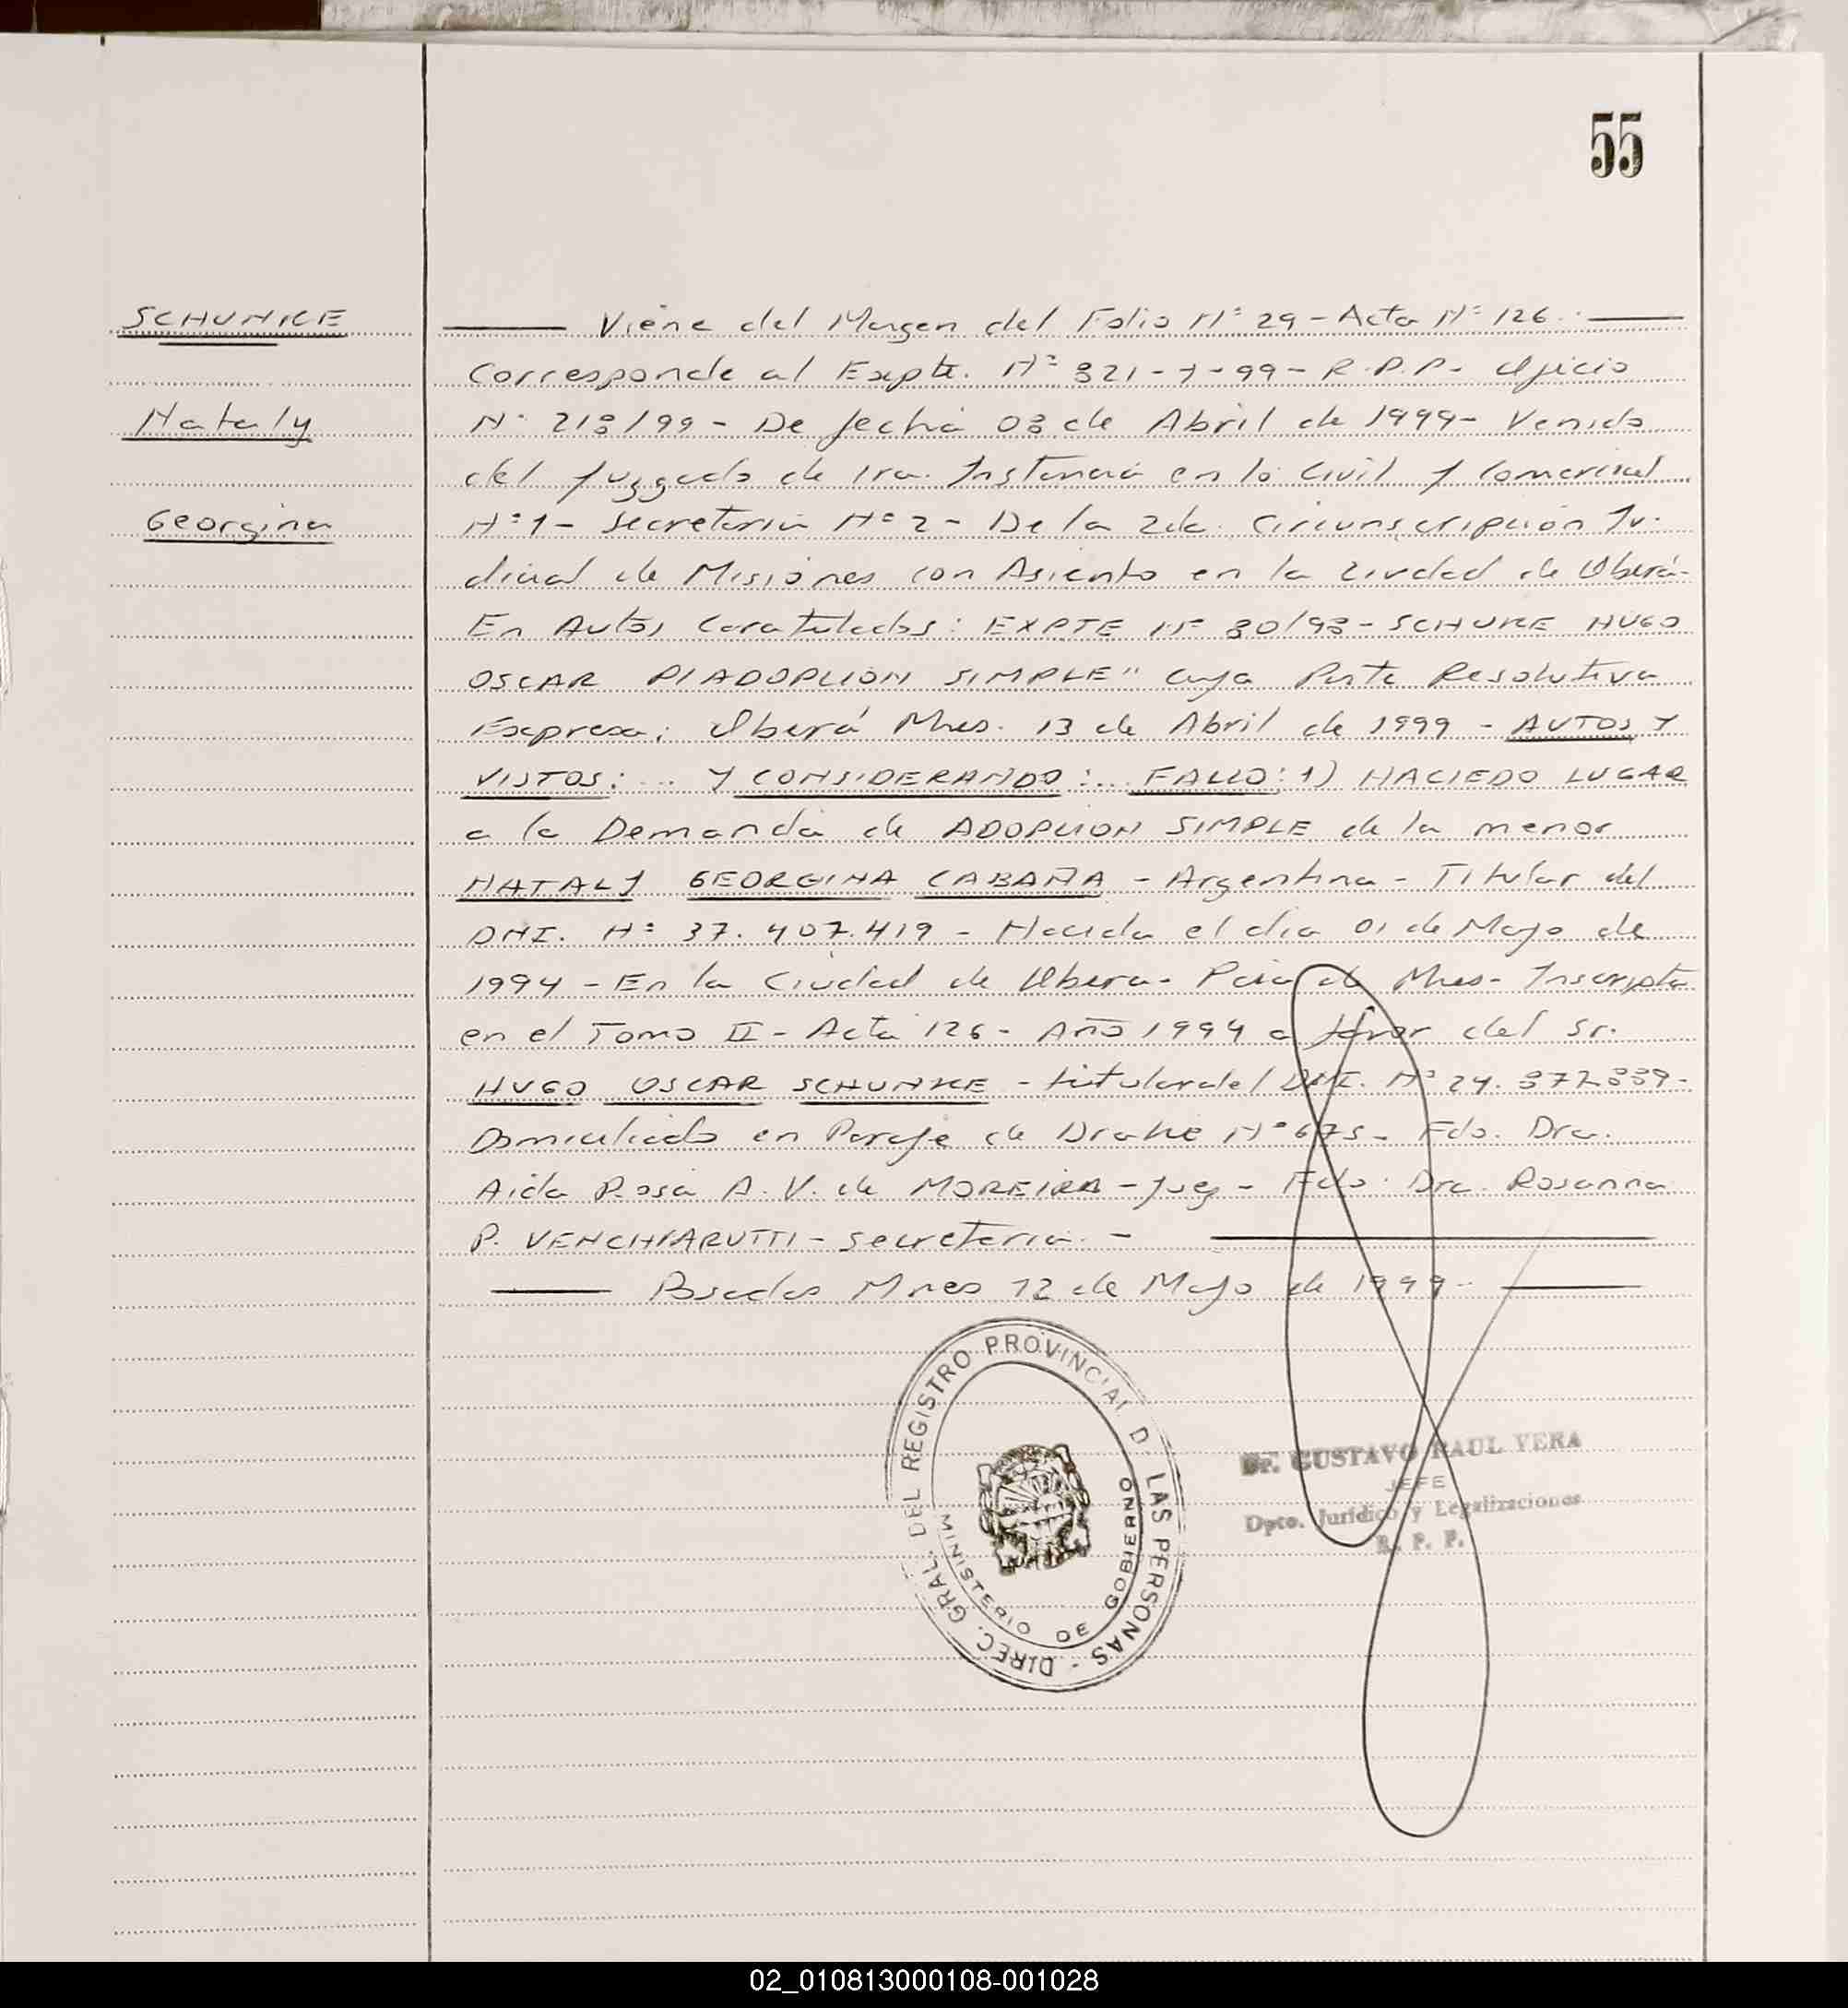 55
SCHUNKE
Nataly
Georgina
Viene del Margen del Folio Nº 29 - Acta Nº 126.
Corresponde al Expte. Nº 321-7-99 - R.P.P. - Oficio
Nº 213/99 - De fecha 03 de Abril de 1999 - Venido
del Juzgado de 1ra. Instancia en lo Civil y Comercial
Nº 1 - Secretaria Nº 2 - De la 2da. Circunscripción Ju-
dicial de Misiones con Asiento en la Ciudad de Oberá-
En Autos Caratulados: EXPTE Nº 30/93 - SCHUKE HUGO
OSCAR P/ADOPCION SIMPLE" cuya Parte Resolutiva
Expresa: Oberá Mnes. 13 de Abril de 1999 - AUTOS Y
VISTOS: ... Y CONSIDERANDO: ... FALLO: 1) HACIEDO LUGAR
a la Demanda de ADOPCION SIMPLE de la menor
NATALY GEORGINA CABAÑA - Argentina - Titular del
DNI. Nº 37.407.419 - Nacida el día 01 de Mayo de
1994 - En la Ciudad de Obera - de Mnes - Inscripta
en el Tomo II - Acta 126 - Año 1994 a favor del Sr.
HUGO OSCAR SCHUNKE - titular del DNI. Nº 24.372.339 -
Domiciliado en Paraje de Nº 675 - Fdo. Dra.
Aida Rosa A. V. de MOREIRA - Juez - Fdo. Dra. Rosanna
P. VENCHIARUTTI - Secretaria. -
Posadas Mnes 12 de Mayo de 1999 -
DIREC. GRAL. DEL REGISTRO PROVINCIAL D LAS PERSONAS -
MINISTERIO DE GOBIERNO
Dr. GUSTAVO RAUL VERA
JEFE
Dpto. Jurídico y Legalizaciones
R. P. P.
02_010813000108-001028